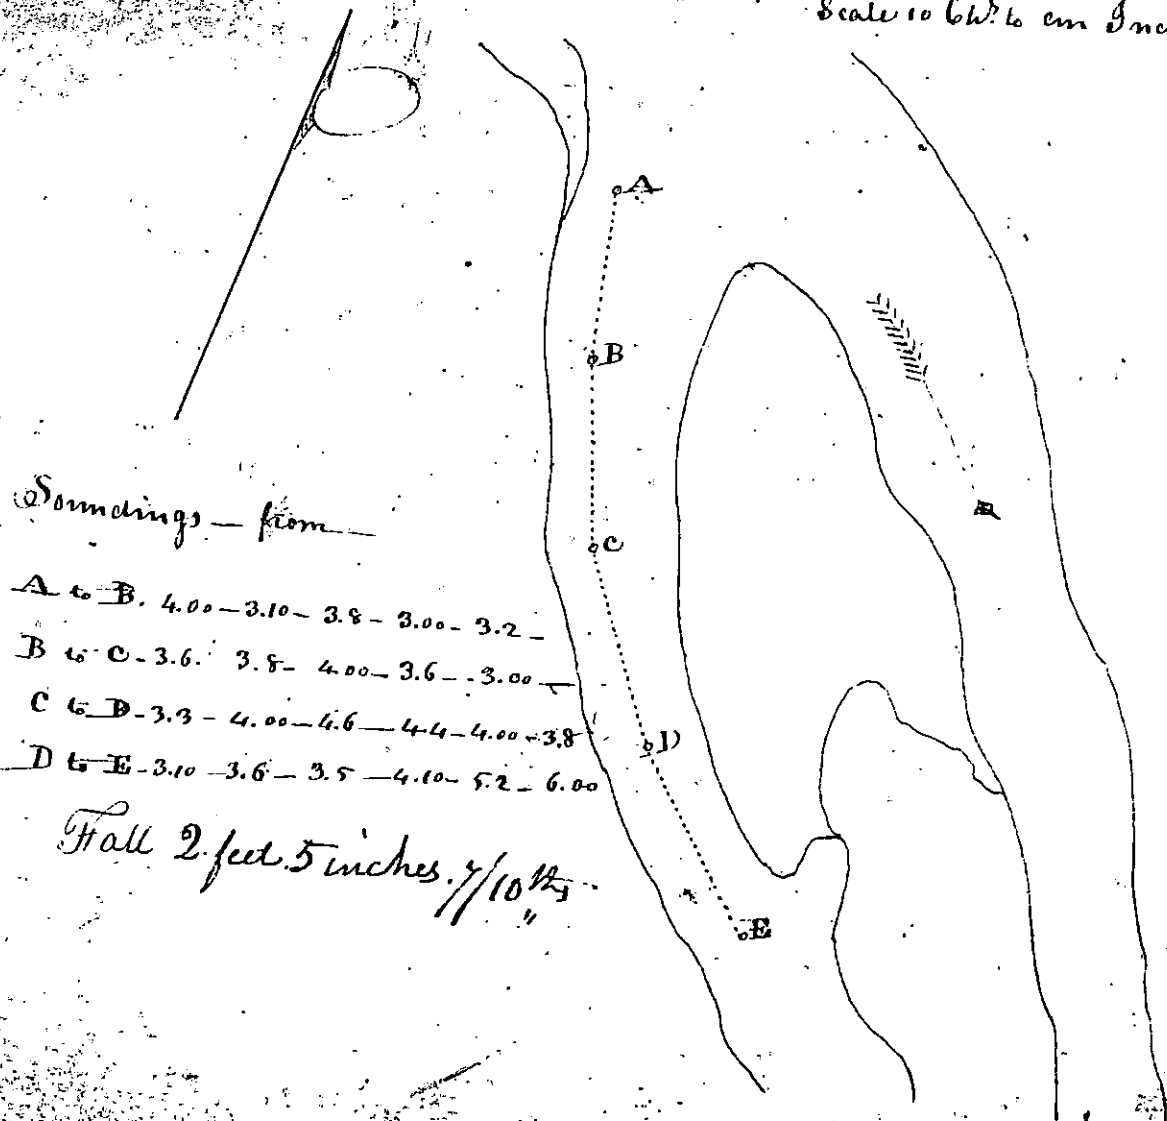 Scale 10 Chs. to an Inc
A
B
C
D
E
Soundings — from
A to B. 4.00 — 3.10 — 3.8 — 3.00 — 3.2 —
B to C — 3.6. 3.8 — 4.00 — 3.6 — 3.00 —
C to D — 3.3 — 4.00 — 4.6 — 4.4 — 4.00 — 3.8
D to E — 3.10 — 3.6 — 3.5 — 4.10 — 5.2 — 6.00
Fall 2 feet 5 inches 7/10ths